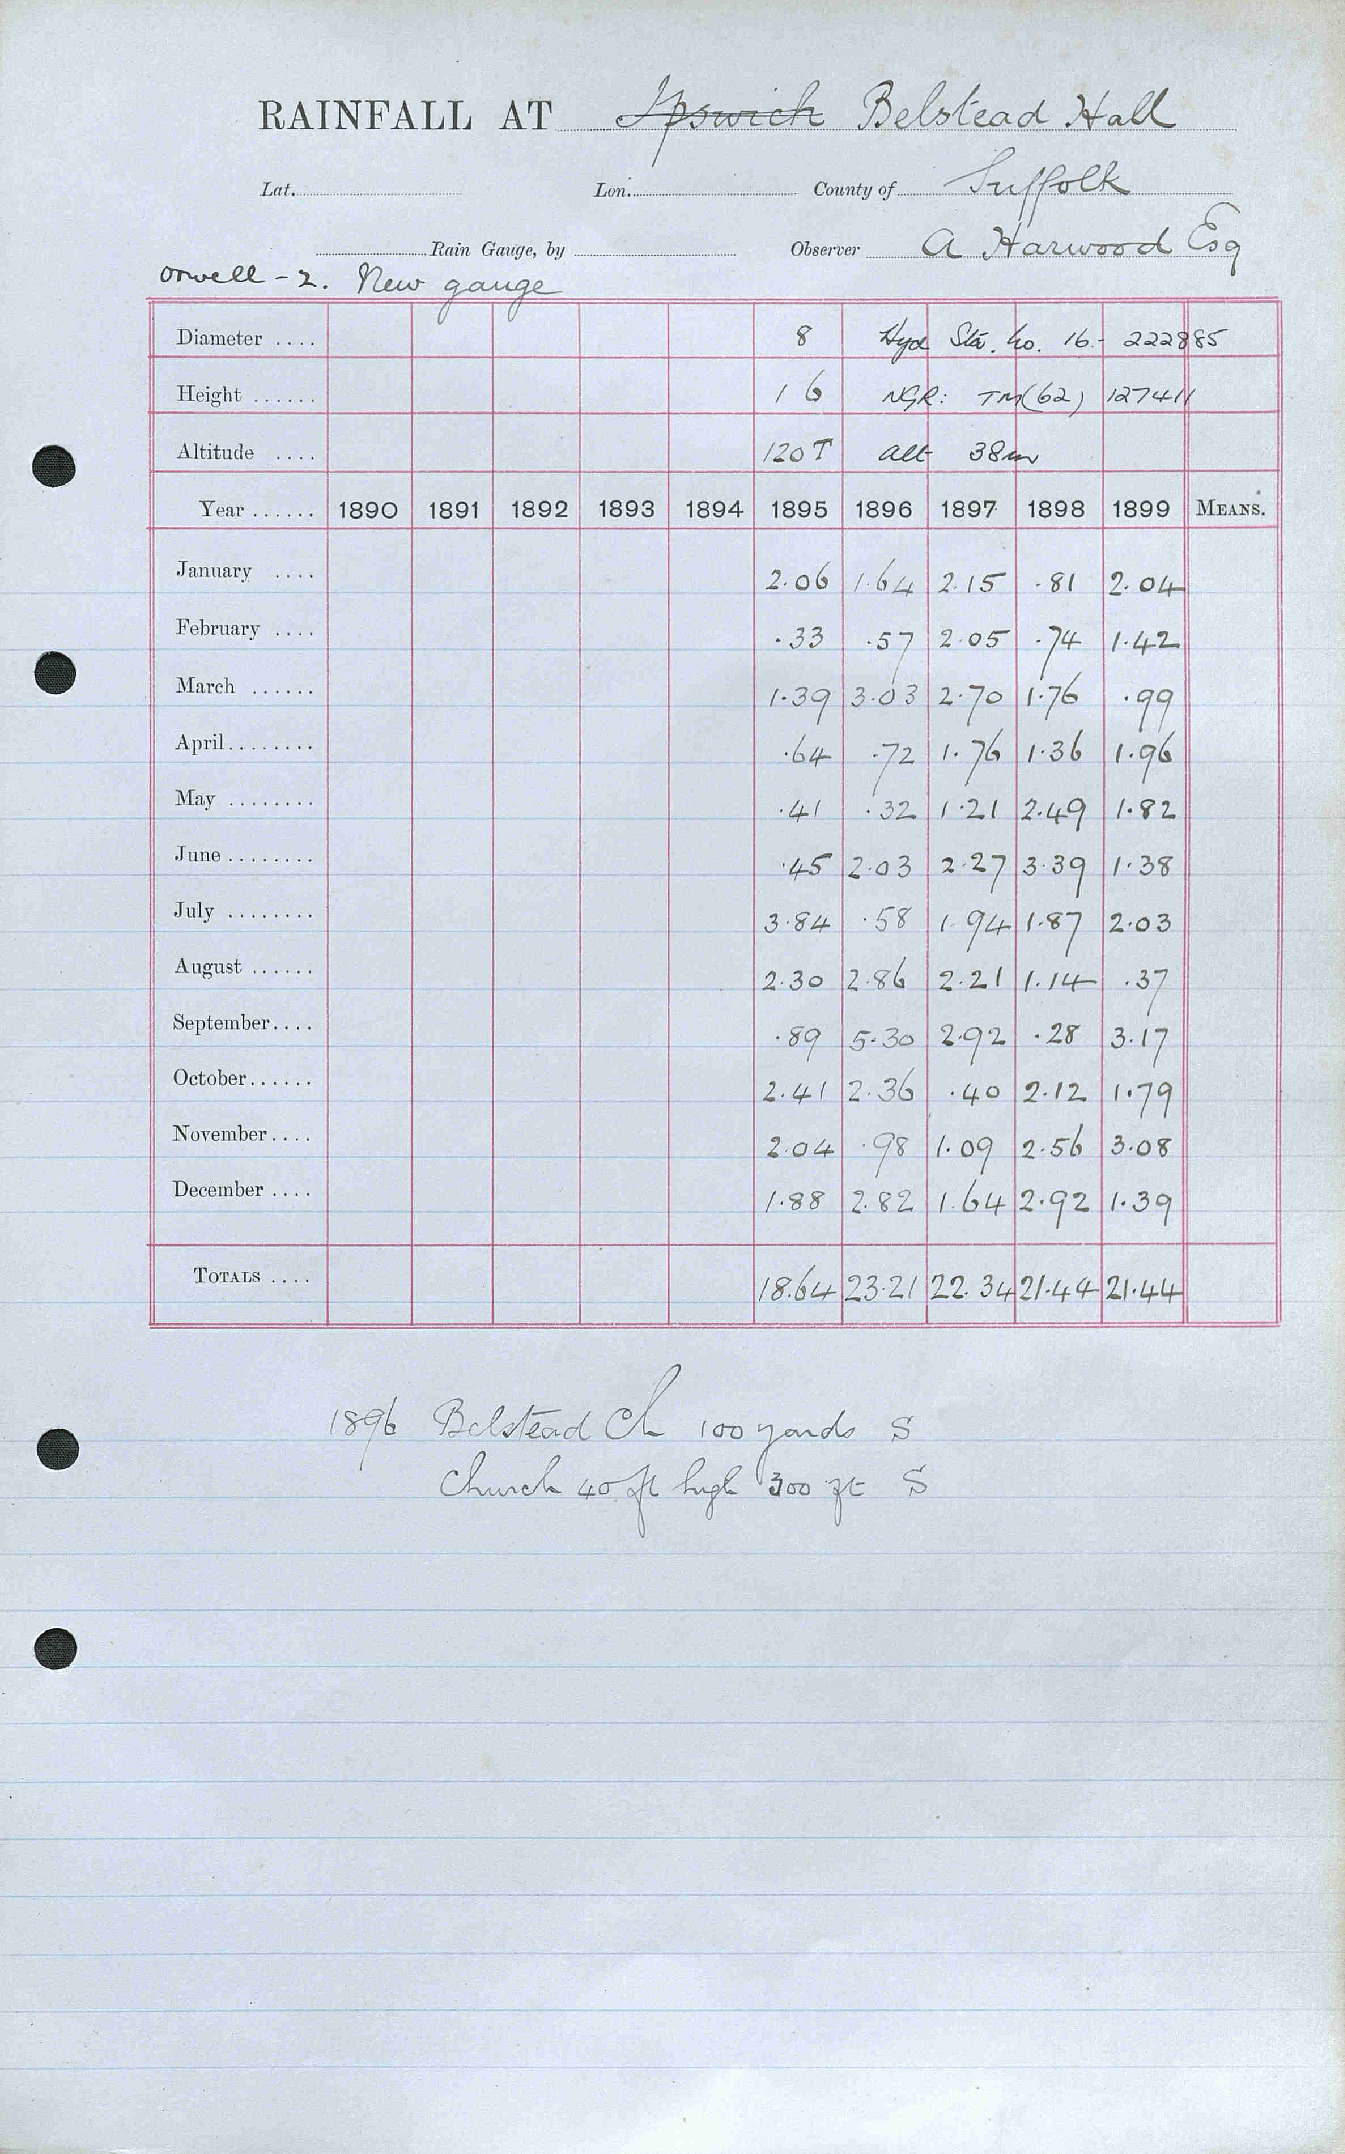 RAINFALL AT Ipswich Belstead Hall
Lat. Lon. County of Suffolk
Rain Gauge, by Observer A Harwood Esq
Orwell - 2. New gauge
Diameter .... 8 Hyd Sta. No. 16.- 222885
Height ...... 1 6 NGR: TM(62) 127411
Altitude .... 120 T alt 38m
Year ...... 1890 1891 1892 1893 1894 1895 1896 1897 1898 1899 MEANS.
January .... 2.06 1.64 2.15 .81 2.04
February .... .33 .57 2.05 .74 1.42
March ...... 1.39 3.03 2.70 1.76 .99
April........ .64 .72 1.76 1.36 1.96
May ........ .41 .32 1.21 2.49 1.82
June ........ .45 2.03 2.27 3.39 1.38
July ........ 3.84 .58 1.94 1.87 2.03
August ...... 2.30 2.86 2.21 1.14 .37
September.... .89 5.30 2.92 .28 3.17
October...... 2.41 2.36 .40 2.12 1.79
November.... 2.04 .98 1.09 2.56 3.08
December .... 1.88 2.82 1.64 2.92 1.39
TOTALS .... 18.64 23.21 22.34 21.44 21.44
1896 Belstead Ch 100 yards S
Church 40 ft high 300 ft S